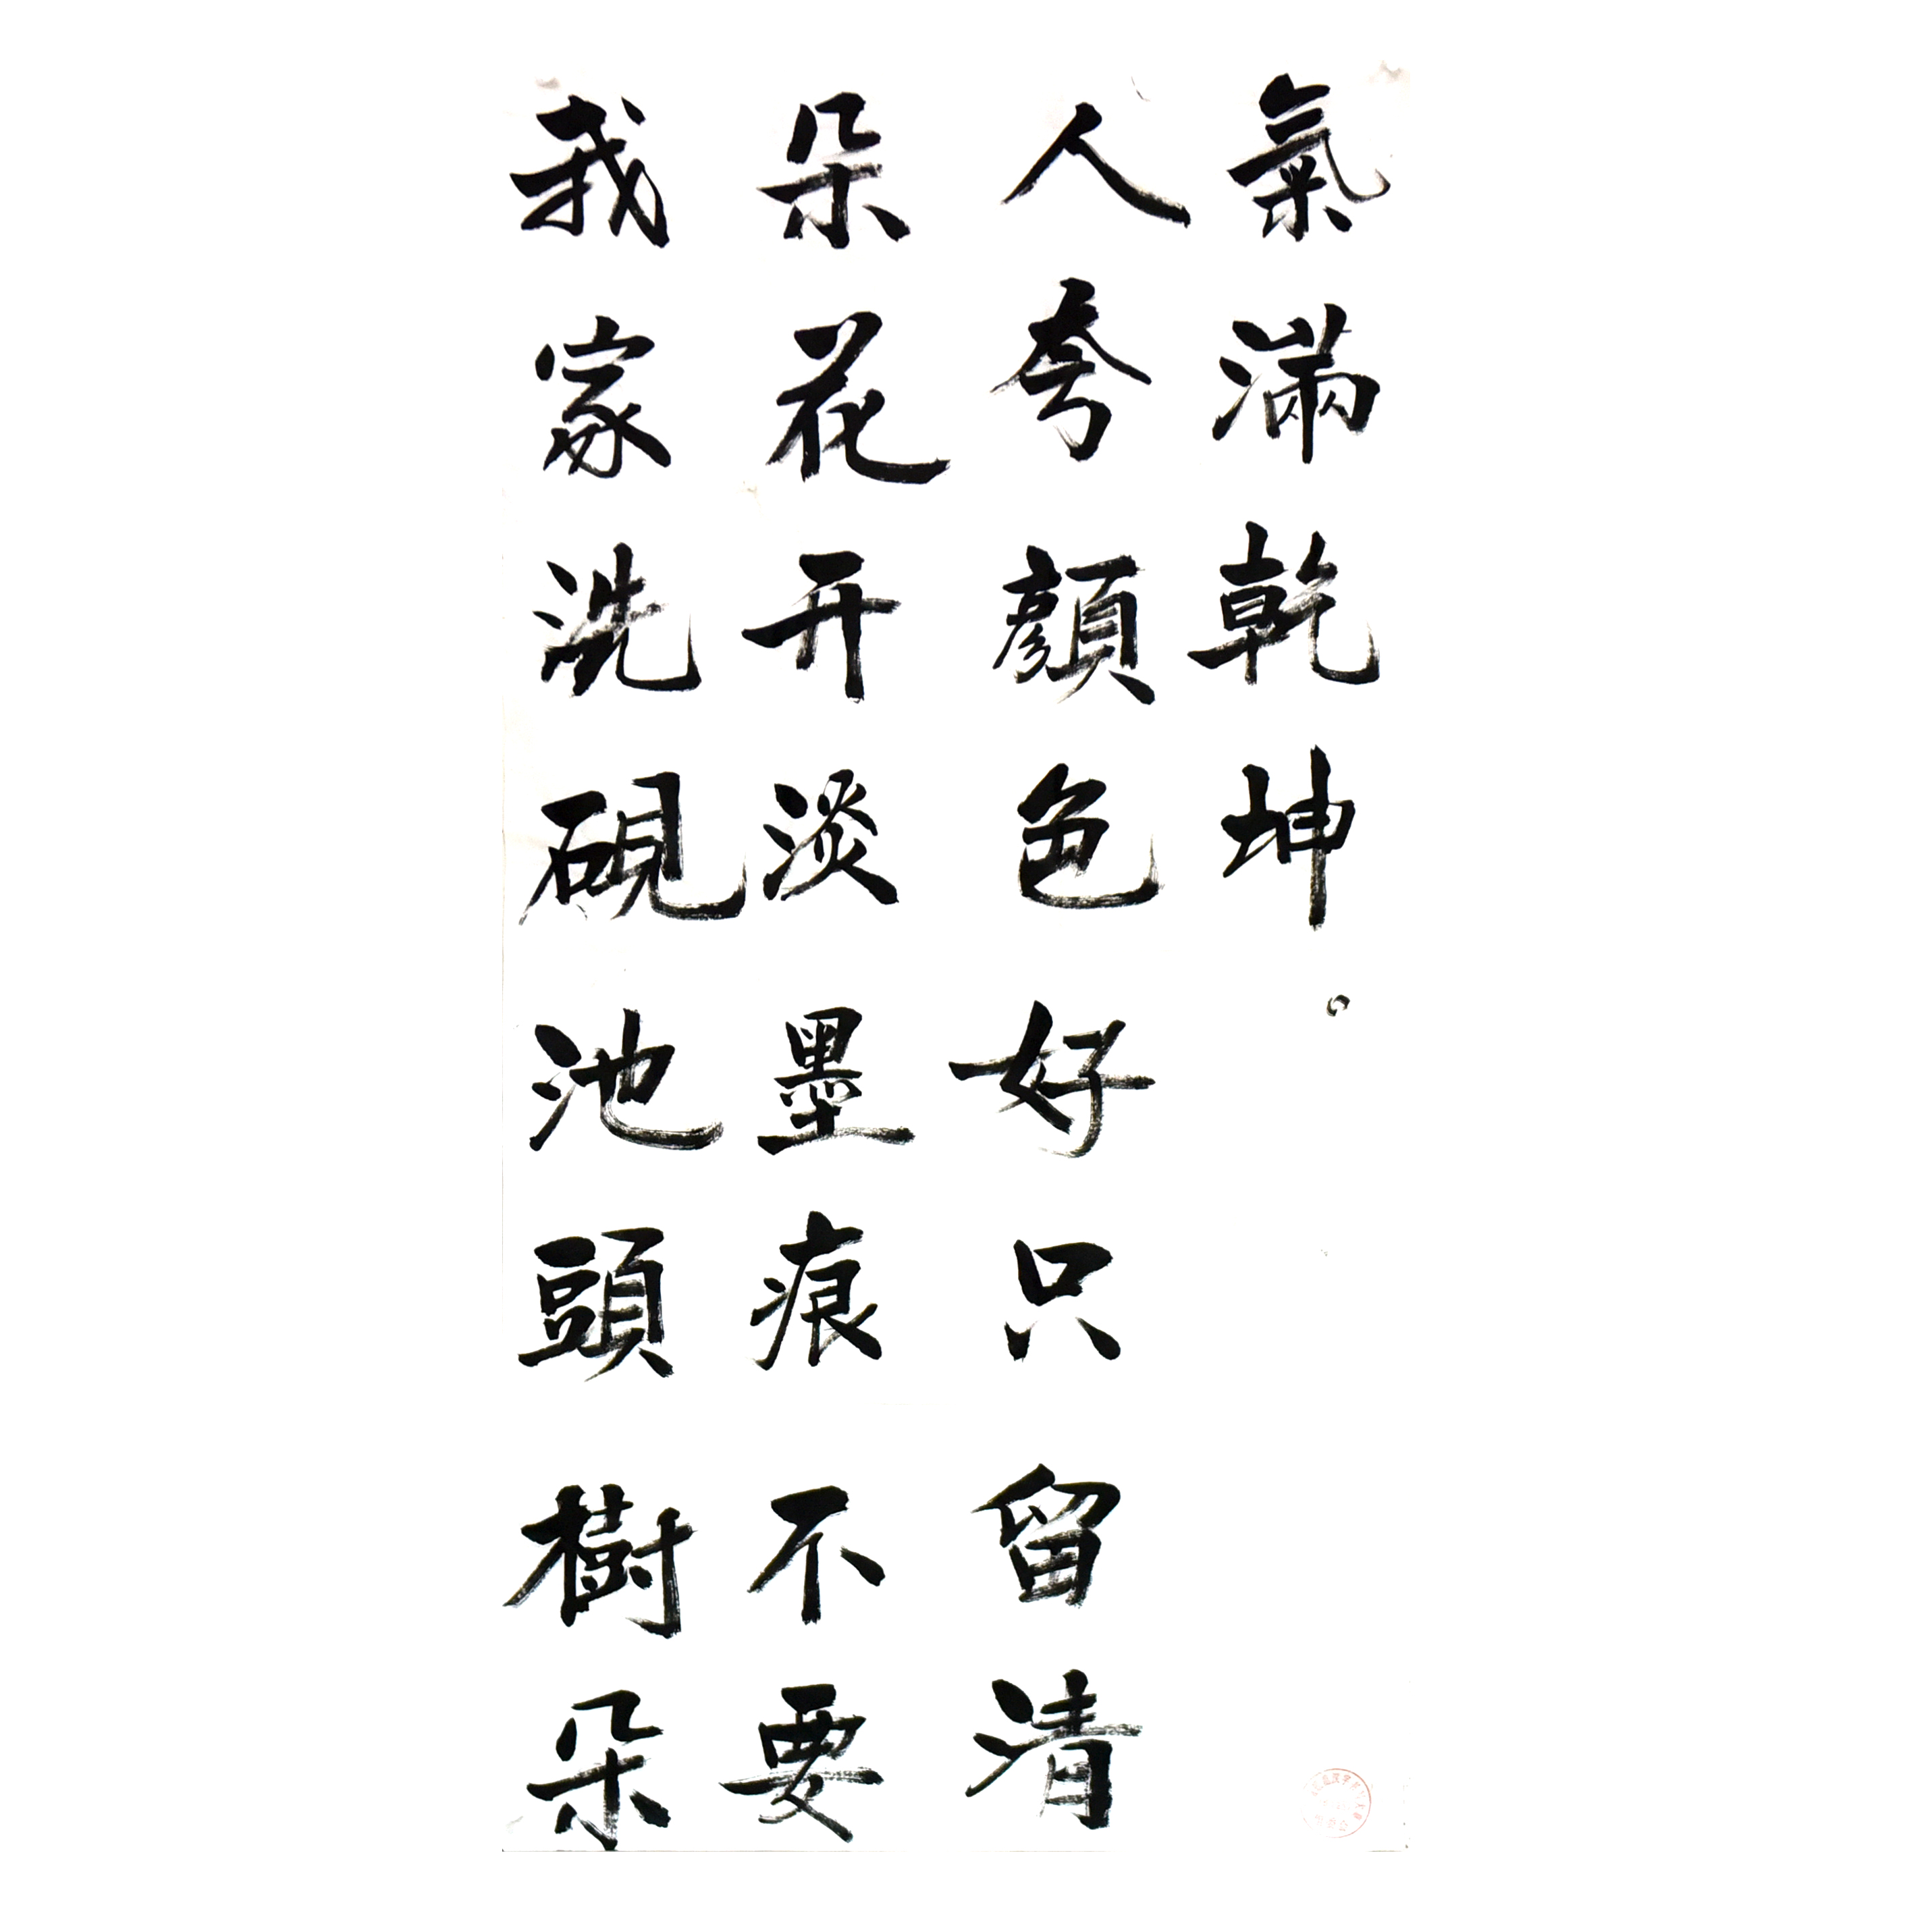 我家洗硯池頭樹朵
朵花开淡墨痕不要
人夸顔色好只留清
氣滿乾坤。